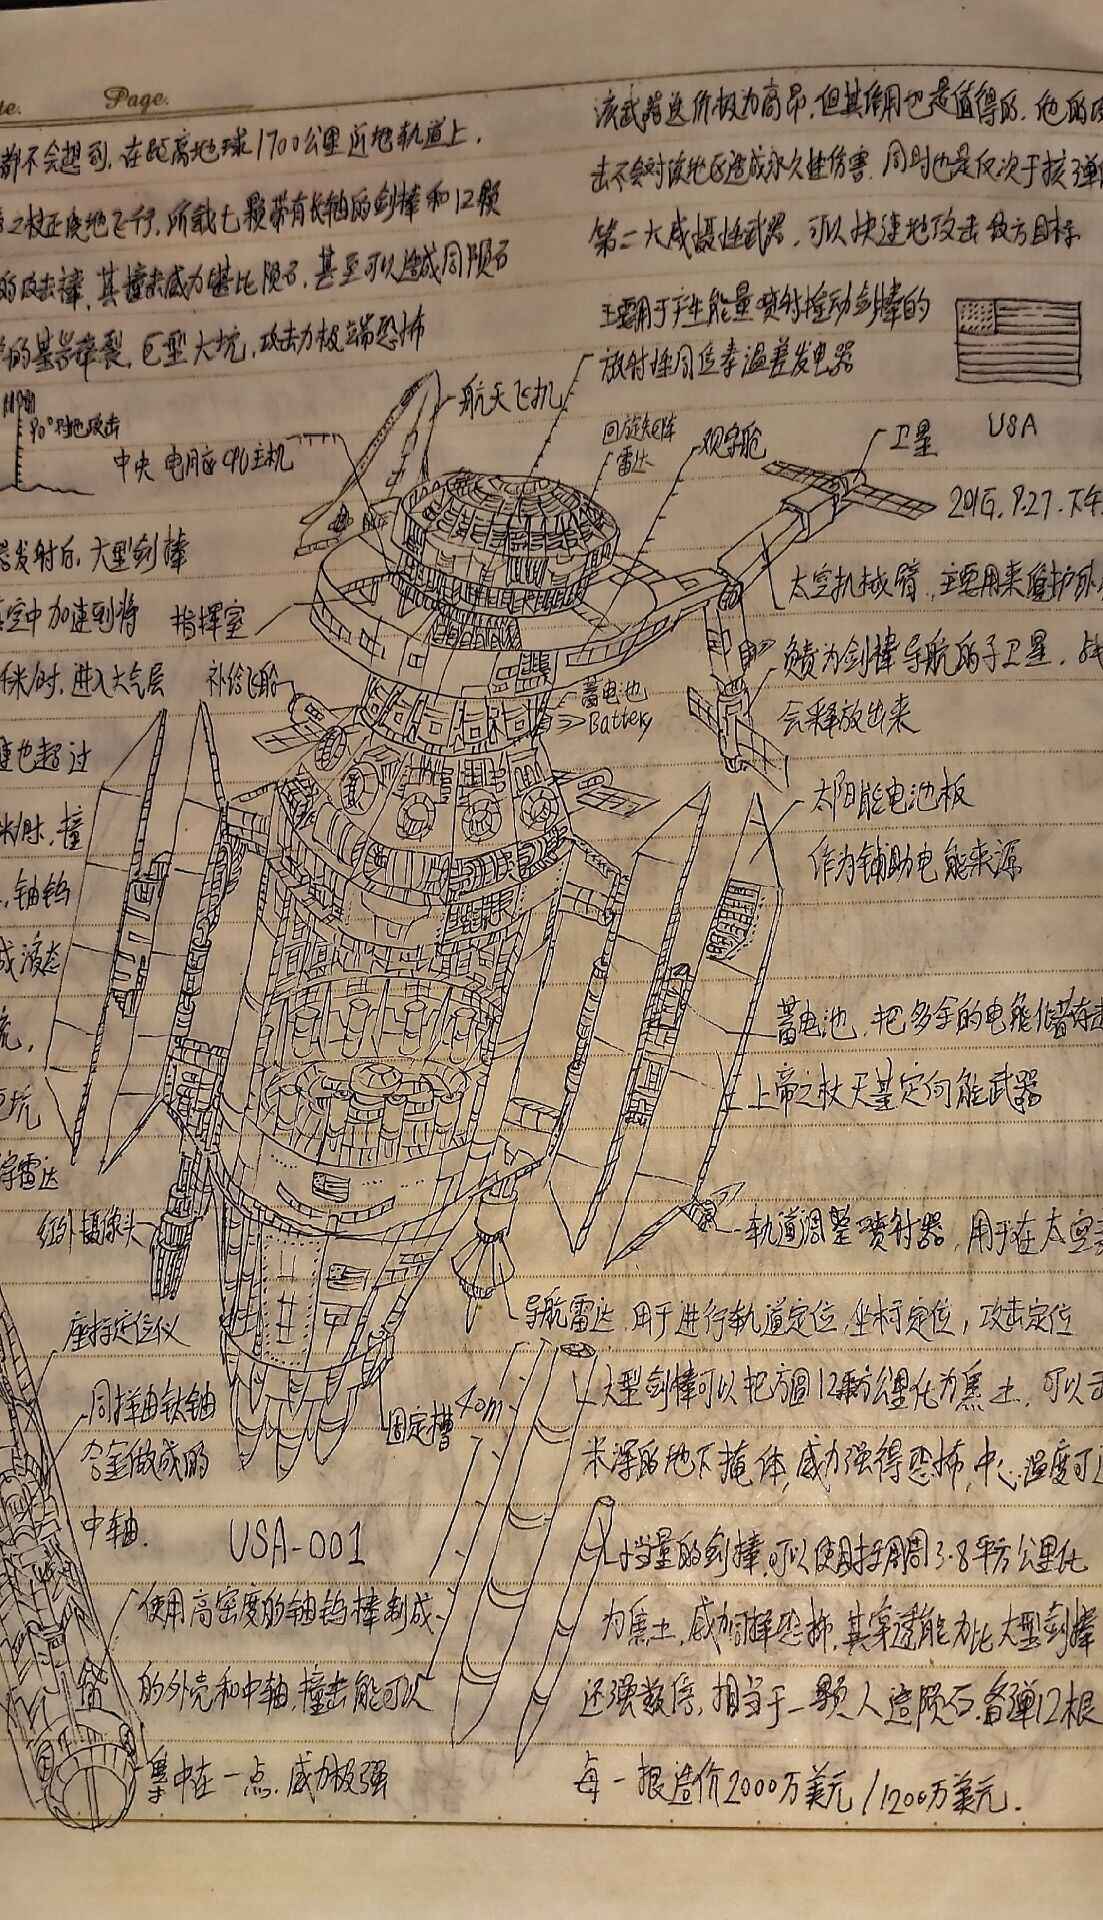 te.
Page.
都不会想到,在距离地球1700公里近地轨道上,
之杖正废地飞行,所载七颗带有长轴的剑棒和12颗
的攻击棒,其撞击威力堪比陨石,甚至可以造成同陨石
的基岩碎裂,巨型大坑,攻击力极端恐怖
该武器造价极为高昂,但其作用也是值得的,他的攻
击不会对该地区造成永久性伤害,同时也是仅次于核弹的
第二大威慑性武器,可以快速地攻击敌方目标
主要用于产生能量喷射推动剑棒的
放射性同位素温差发电器
USA
90°对地攻击
中央电用应CPU主机
航天飞机
回旋矩阵
雷达
观察舱
卫星
2016.9.27.下午
器发射后,大型剑棒
空中加速到将
千米/时,进入大气层
速也超过
米/时,撞
,铀钨
成液态
流,
巨坑
指挥室
补给飞船
蓄电池
Battery
太空机械臂,主要用来维护
负责为剑棒导航的子卫星,战
会释放出来
太阳能电池板
作为辅助电能来源
蓄电池,把多余的电能储蓄
上帝之杖天基定向能武器
轨道调整喷射器,用于在太空
雷达
红外摄像头
座标定位仪
导航雷达,用于进行轨道定位,坐标定位,攻击定位
同样由钛铀
合金做成的
中轴.
固定槽
40m
大型剑棒可以把方圆12平方公里化为焦土,可以
米深的地下掩体,威力强得恐怖,中心温度可
USA-001
小当量的剑棒,可以使用于周周3.8平方公里化
为焦土,威力同样恐怖,其穿透能力比大型剑棒
还强数倍,相当于一颗人造陨石.备弹12根
使用高密度的铀钨棒制成
的外壳和中轴,撞击能可以
集中在一点,威力极强
每一根造价2000万美元/1200万美元.